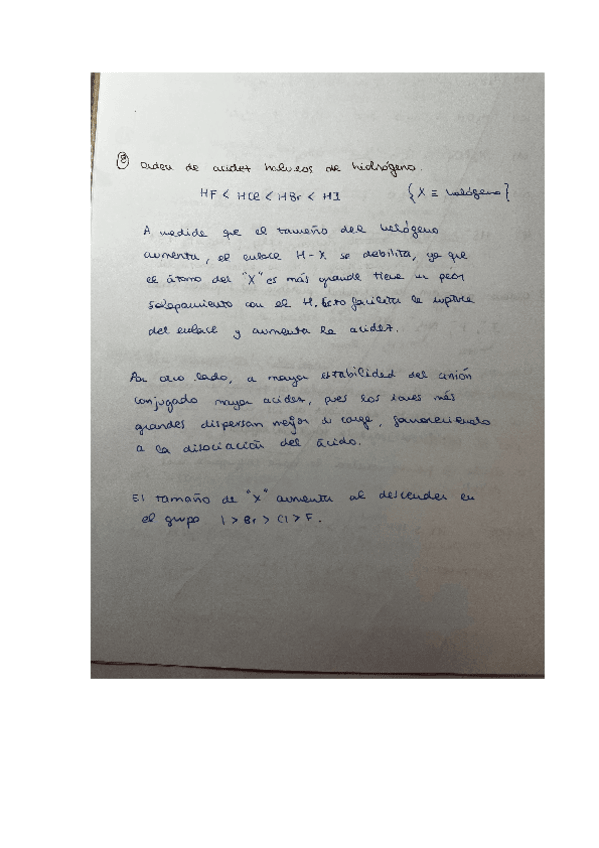 ⑧ Orden de acidez haluros de hidrógeno.
HF < HCl < HBr < HI {X ≡ halógeno}
A medida que el tamaño del halógeno
aumenta, el enlace H-X se debilita, ya que
el átomo del "X" es más grande tiene un peor
solapamiento con el H. Esto facilita la ruptura
del enlace y aumenta la acidez.
Por otro lado, a mayor estabilidad del anión
conjugado mayor acidez, pues los iones más
grandes dispersan mejor su carga, favoreciendo
a la disociación del ácido.
El tamaño de "X" aumenta al descender en
el grupo I > Br > Cl > F.